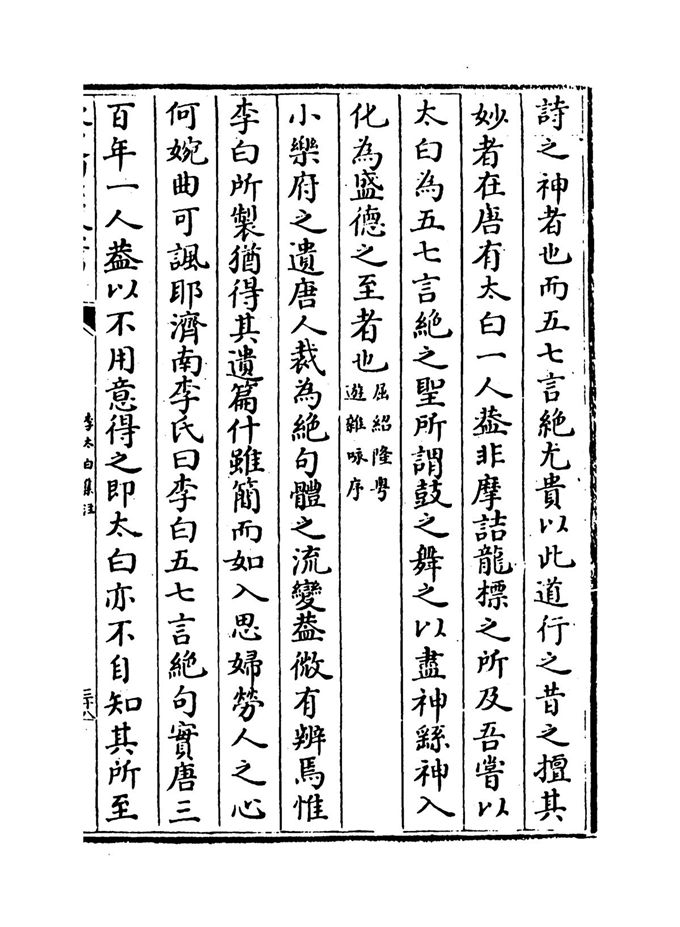 詩之神者也而五七言絶尤貴以此道行之昔之擅其
妙者在唐有太白一人葢非摩詰龍標之所及吾嘗以
太白為五七言絶之聖所謂鼓之舞之以盡神繇神入
化為盛德之至者也屈紹隆粤遊雜咏序
小樂府之遺唐人裁為絶句體之流變葢微有辨焉惟
李白所製猶得其遺篇什雖簡而如入思婦勞人之心
何婉曲可諷耶濟南李氏曰李白五七言絶句實唐三
百年一人葢以不用意得之即太白亦不自知其所至
李太白集注